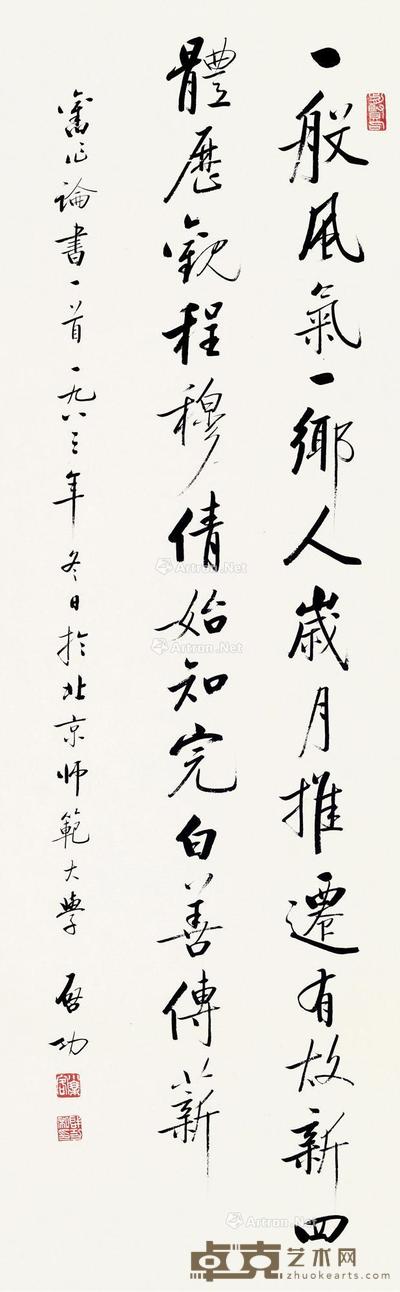 一般風氣一鄉人歲月推遷有故新四
體歷觀程穆倩始知完白善傳薪
舊作論書一首一九八三年冬日於北京師範大學 启功
Artron.Net
Artron.Net
Artron.Net
Artron.Net
卓克艺术网
zhuokearts.com